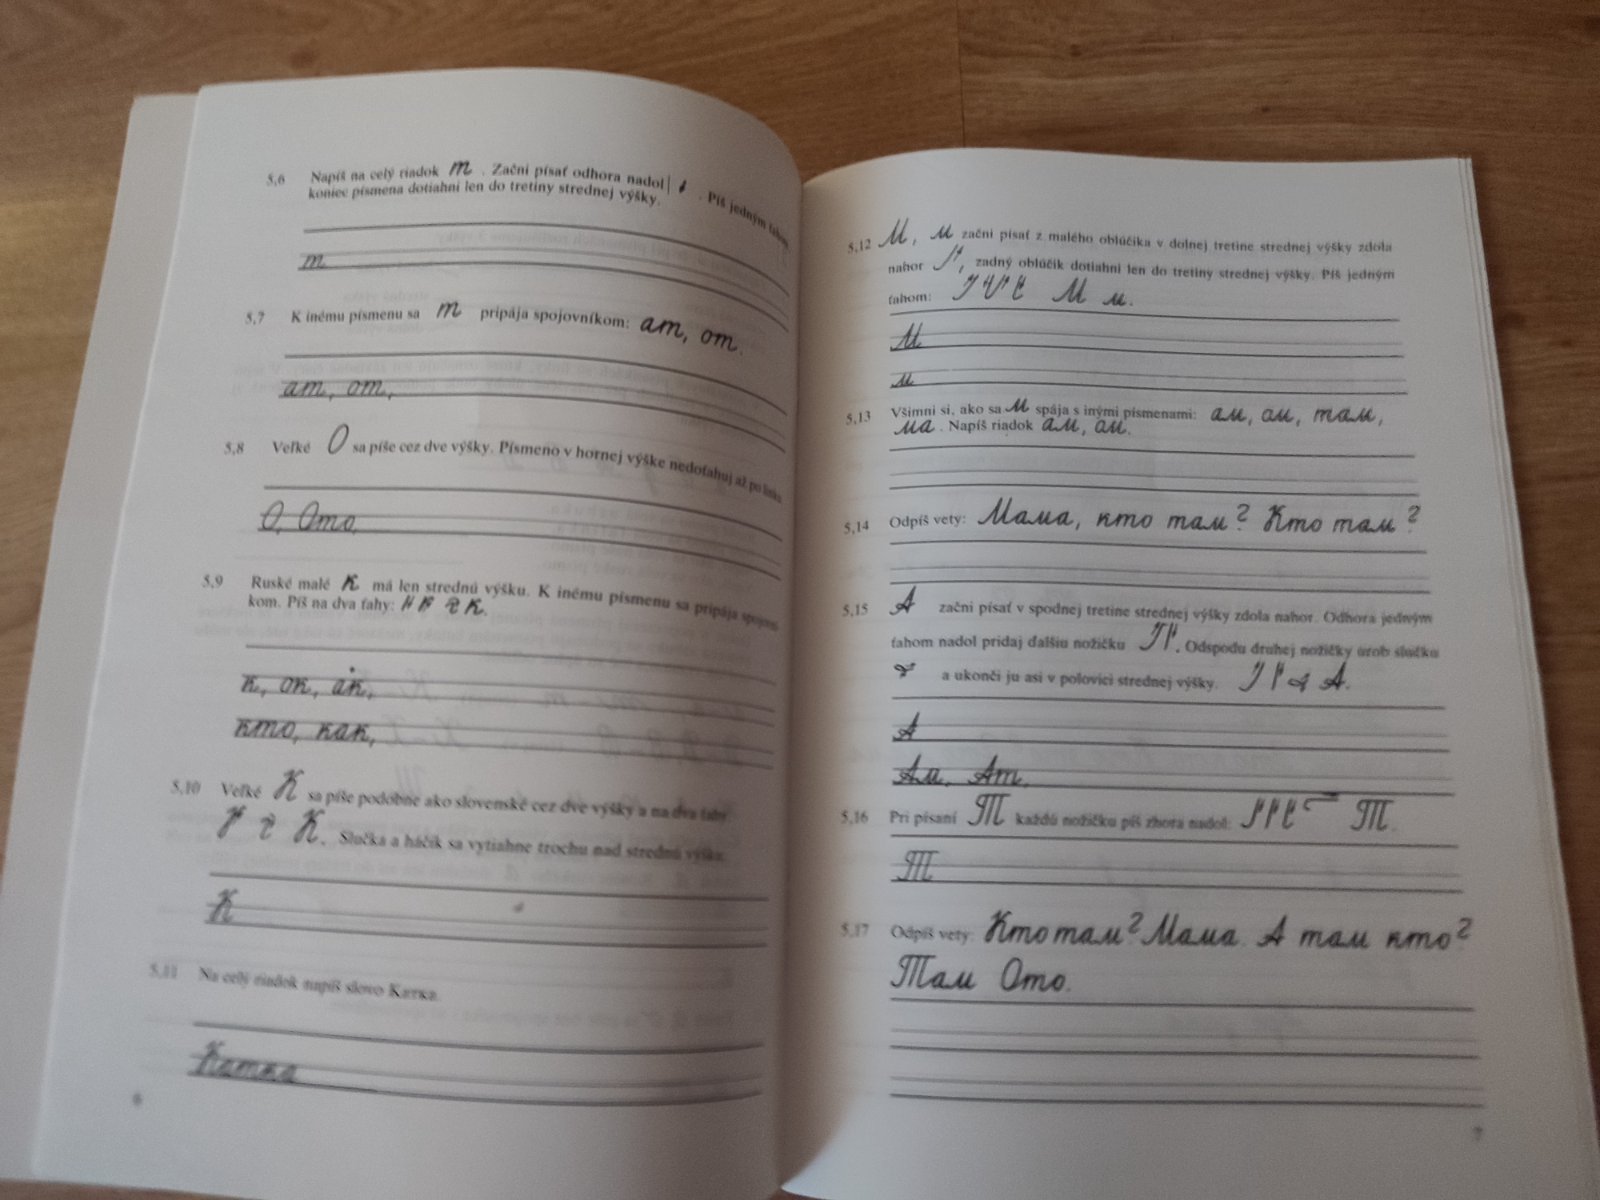 5,6 Napíš na celý riadok т . Začni písať odhora nadol . Píš jedným ťahom
koniec písmena dotiahni len do tretiny strednej výšky.
т
5,7 K inému písmenu sa т pripája spojovníkom: ат, от.
ат, от,
5,8 Veľké О sa píše cez dve výšky. Písmeno v hornej výške nedoťahuj až po linku
О, Ото,
5,9 Ruské malé к má len strednú výšku. K inému písmenu sa pripája spojovní
kom. Píš na dva ťahy: к.
к, ок, ак,
кто, как,
5,10 Veľké К sa píše podobne ako slovenské cez dve výšky a na dva ťahy
К. Slučka a háčik sa vytiahne trochu nad strednú výšku.
К
5,11 Na celý riadok napíš slovo Катка.
Катка
6
5,12 М, м začni písať z malého oblúčika v dolnej tretine strednej výšky zdola
nahor , zadný oblúčik dotiahni len do tretiny strednej výšky. Píš jedným
ťahom: М м.
М
м
5,13 Všimni si, ako sa м spája s inými písmenami: ам, ом, там,
ма . Napíš riadok ам, ом.
5,14 Odpíš vety: Мама, кто там? Кто там?
5,15 А začni písať v spodnej tretine strednej výšky zdola nahor. Odhora jedným
ťahom nadol pridaj ďalšiu nožičku . Odspodu druhej nožičky urob slučku
a ukonči ju asi v polovici strednej výšky. А.
А
Ам, Ат,
5,16 Pri písaní Т každú nožičku píš zhora nadol: Т.
Т
5,17 Odpíš vety: Кто там? Мама. А там кто?
Там Ото.
7